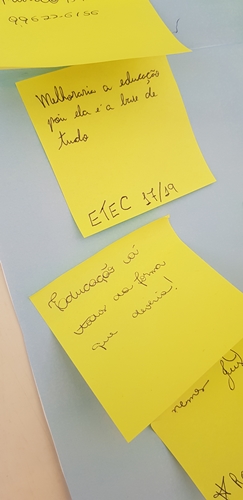 99622-6156
Melhoraria a educação
pois ela é a base de
tudo
ETEC 17/19
Educação vá
da forma
que deveria!
nemos